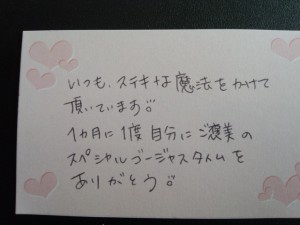 いつも、ステキな魔法をかけて
頂いています。
1カ月に1度自分にご褒美の
スペシャルゴージャスタイムを
ありがとう。